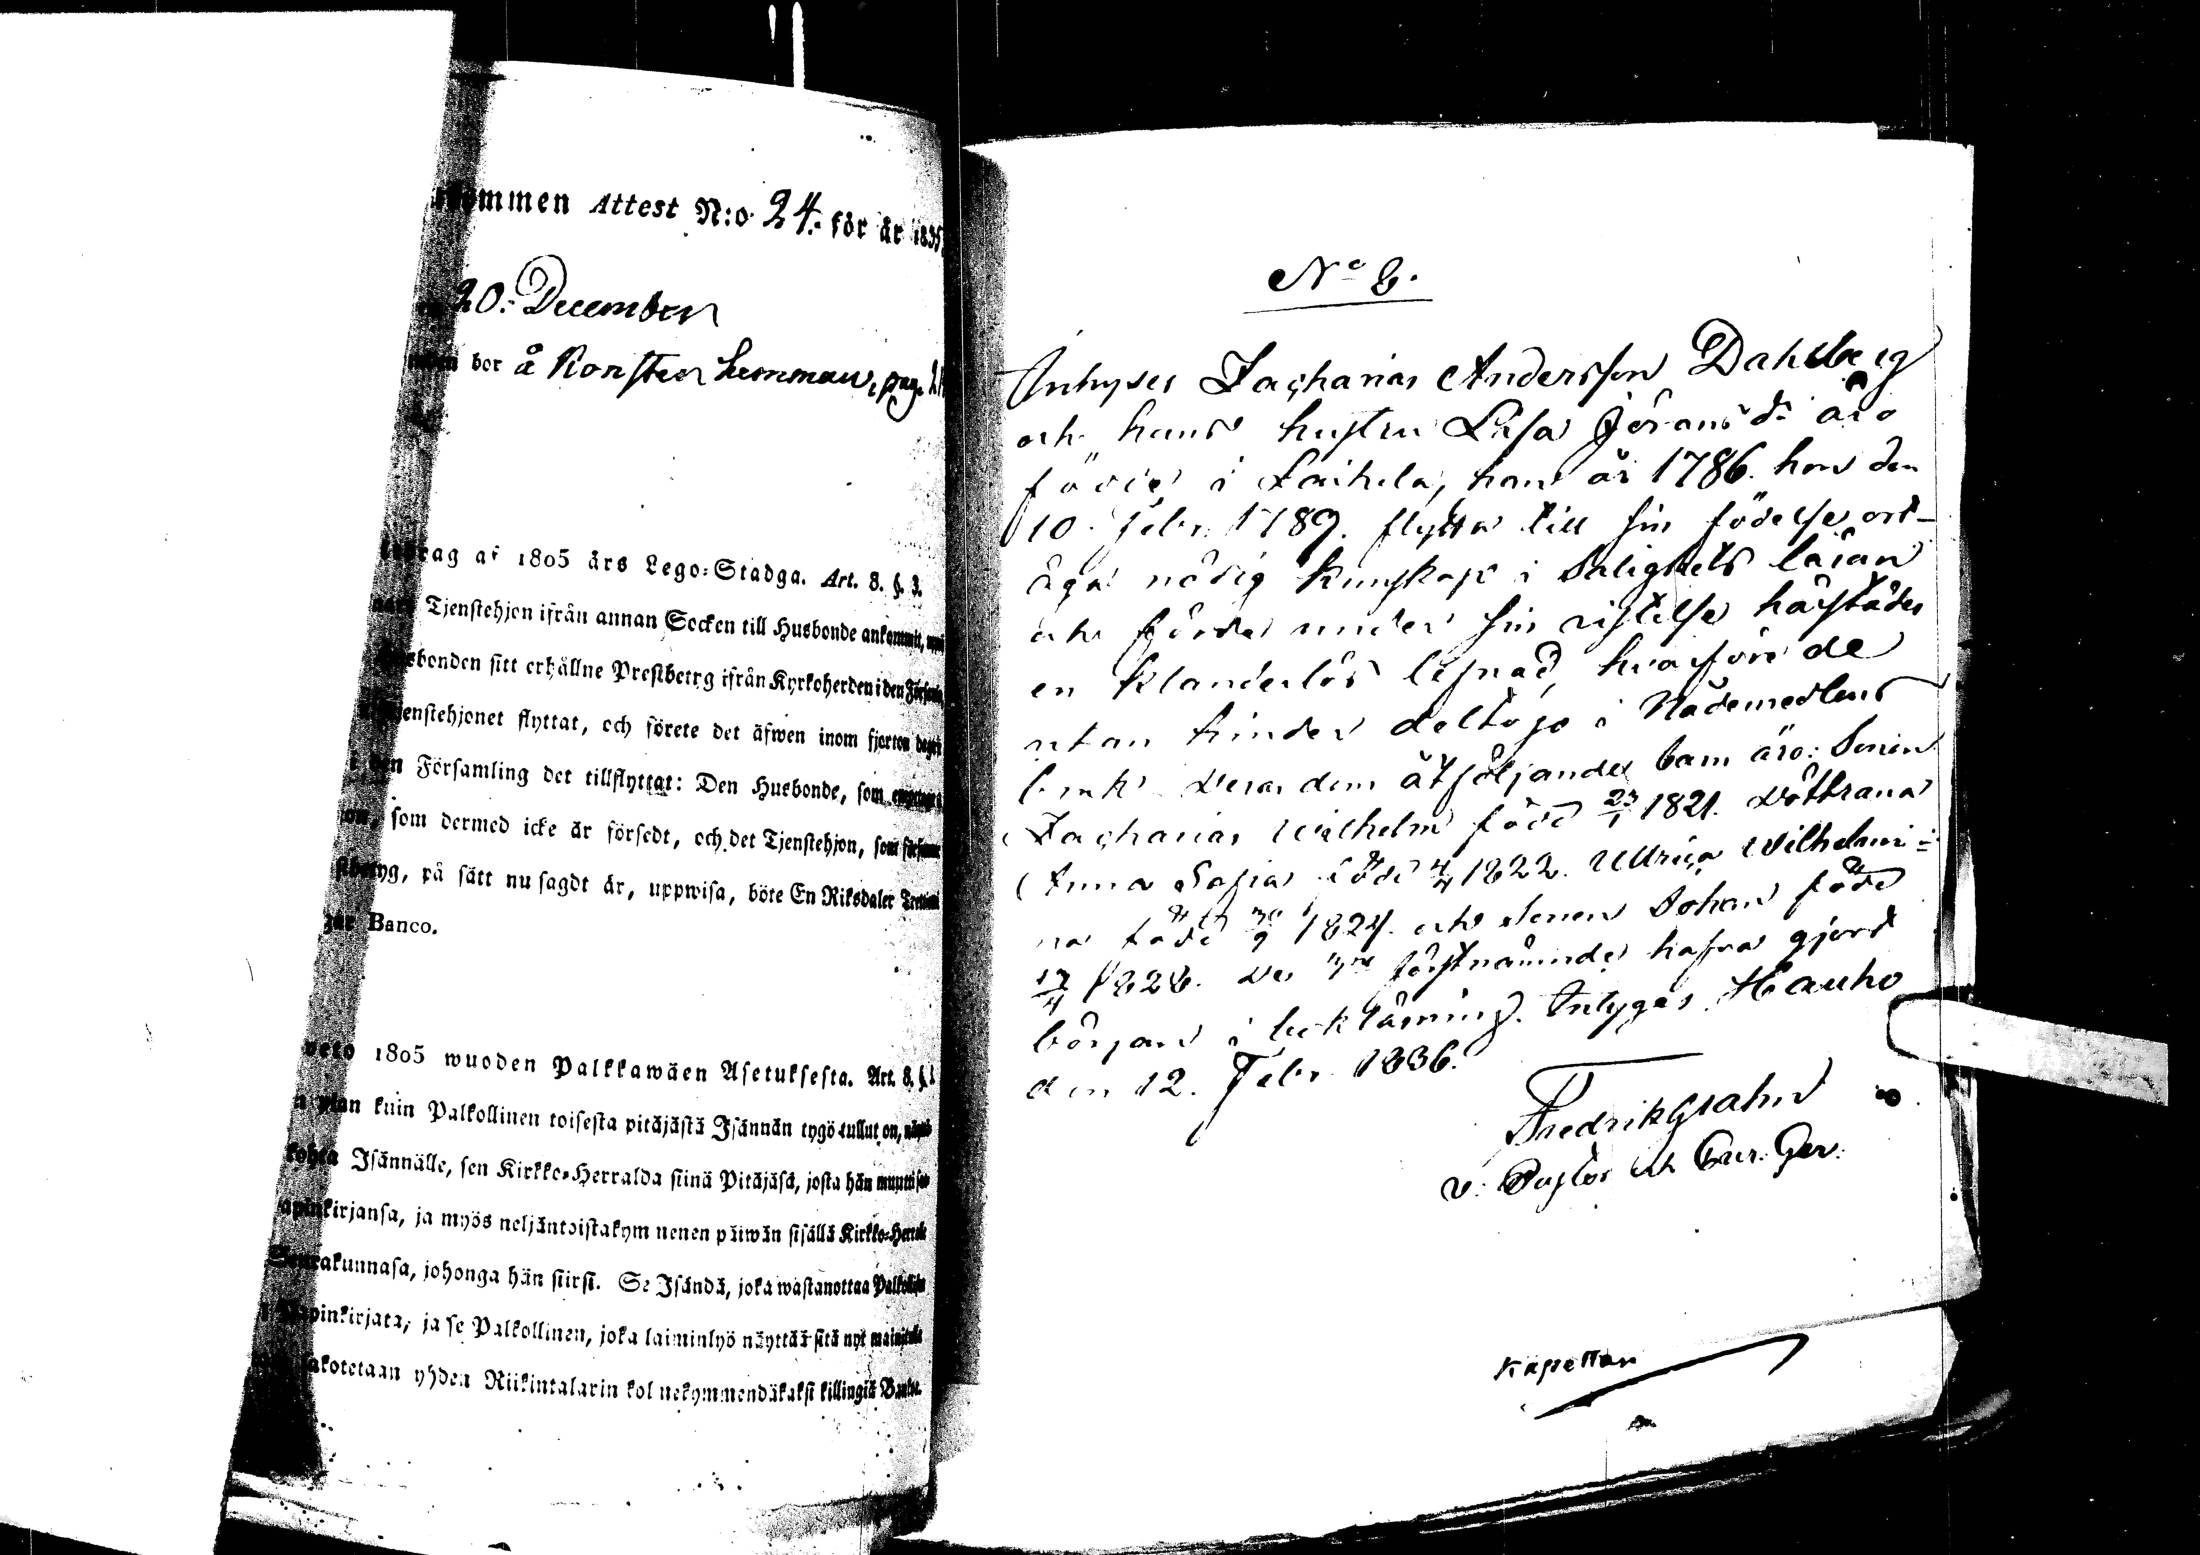 kommen Attest N:o 24. för år 1835
20. December
bor å Korsten hemman, pag.
drag af 1805 års Lego-Stadga. Art. 8. §. 3.
Tjenstehjon ifrån annan Socken till Husbonde ankommit,
bonden sitt erhållne Prestbetyg ifrån Kyrkoherden i den
enstehjonet flyttat, och förete det äfwen inom fjorton dagar
i den Församling det tillflyttat: Den Husbonde, som
som dermed icke är försedt, och det Tjenstehjon, som
yg, på sätt nu sagdt är, uppwisa, böte En Riksdaler
Banco.
1805 wuoden Palkkawäen Asetuksesta. Art. 8. §.
kuin Palkollinen toisesta pitäjästä Isännän tygö tullut on,
kohta Isännälle, sen Kirkko-Herralda siinä Pitäjäsä, josta hän muutti
kirjansa, ja myös neljäntoistakymnenen päiwän sisällä Kirkko-
Seurakunnasa, johonga hän siirsi. Se Isändä, joka wastanottaa
pinkirjata, ja se Palkollinen, joka laiminlyö näyttää sitä nyt
akotetaan yhden Riikintalarin kolmekymmendäkaksi killingiä Banko.
N:o 8.
Inhyses Zacharias Andersson Dahlberg
och hans hustru Lisa Jöransd:r äro
födde i Laihela, han år 1786. hon den
10. Febr. 1789. flytta till sin födelse ort
äga nödig kunskap i Salighets läran
och fördt under sin vistelse härstädes
en klanderlös lefnad, hvarföre de
utan hinder deltaga i Nådemedlens
bruk. Deras dem åtföljande barn äro: Sonen
Zacharias Wilhelm född 23/1 1821. Döttrarna
Anna Sofia född 4/4 1822. Ullrica Wilhelmi-
na född 30/9 1824. och sonen Johan född
17/4 1828. De 3:ne förstnämnda hafva gjort
början i boklärning. Intygas. Hauho
den 12. Febr. 1836.
Fredrik Grahn
v. Pastor och Cur. Ger.
Kapellan